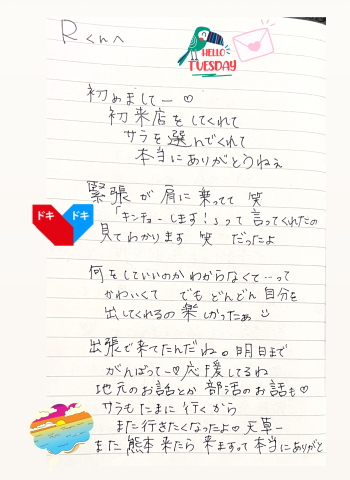 Rくんへ
HELLO
TUESDAY
初めまして〜♡
初来店をしてくれて
サラを選んでくれて
本当にありがとうねぇ
緊張が肩に乗ってて 笑
「キンチョーします!」って言ってくれたの
ドキ ドキ
見てわかります 笑 だったよ
何をしていいのかわからなくて…って
かわいくて でもどんどん自分を
出してくれるの楽しかったぁ
出張で来てたんだね。明日まで
がんばって〜♡応援してるね
地元のお話とか部活のお話も♡
サラもたまに行くから
また行きたくなったよ♡天草ー
また熊本来たら来ますって本当にありがと